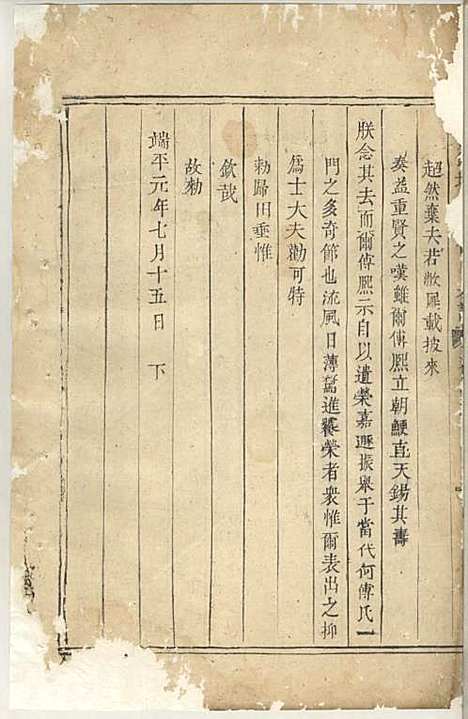 超然棄去若敝屣載披來
奏益重賢之嘆雖爾傅熙立朝鯁直天錫其壽
朕念其去而爾傅熙示自以遺榮嘉遯振舉于當代何傅氏一
門之多奇節也流風日薄騖進饕榮者衆惟爾表出之抑
爲士大夫勸可特
勑歸田垂惟
欽哉
故勑
端平元年七月十五日 下